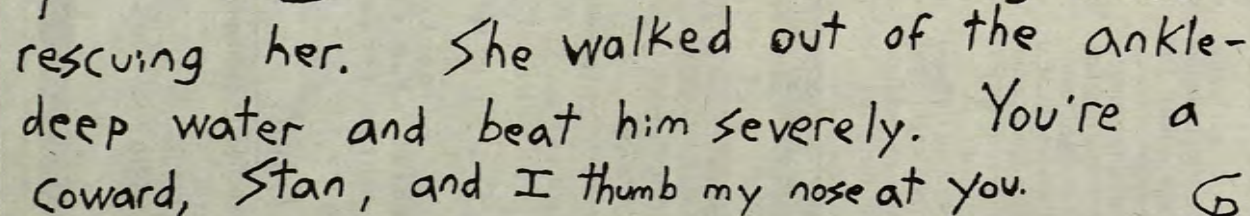 rescuing her. She walked out of the ankle-
deep water and beat him severely. You're a
coward, Stan, and I thumb my nose at you.